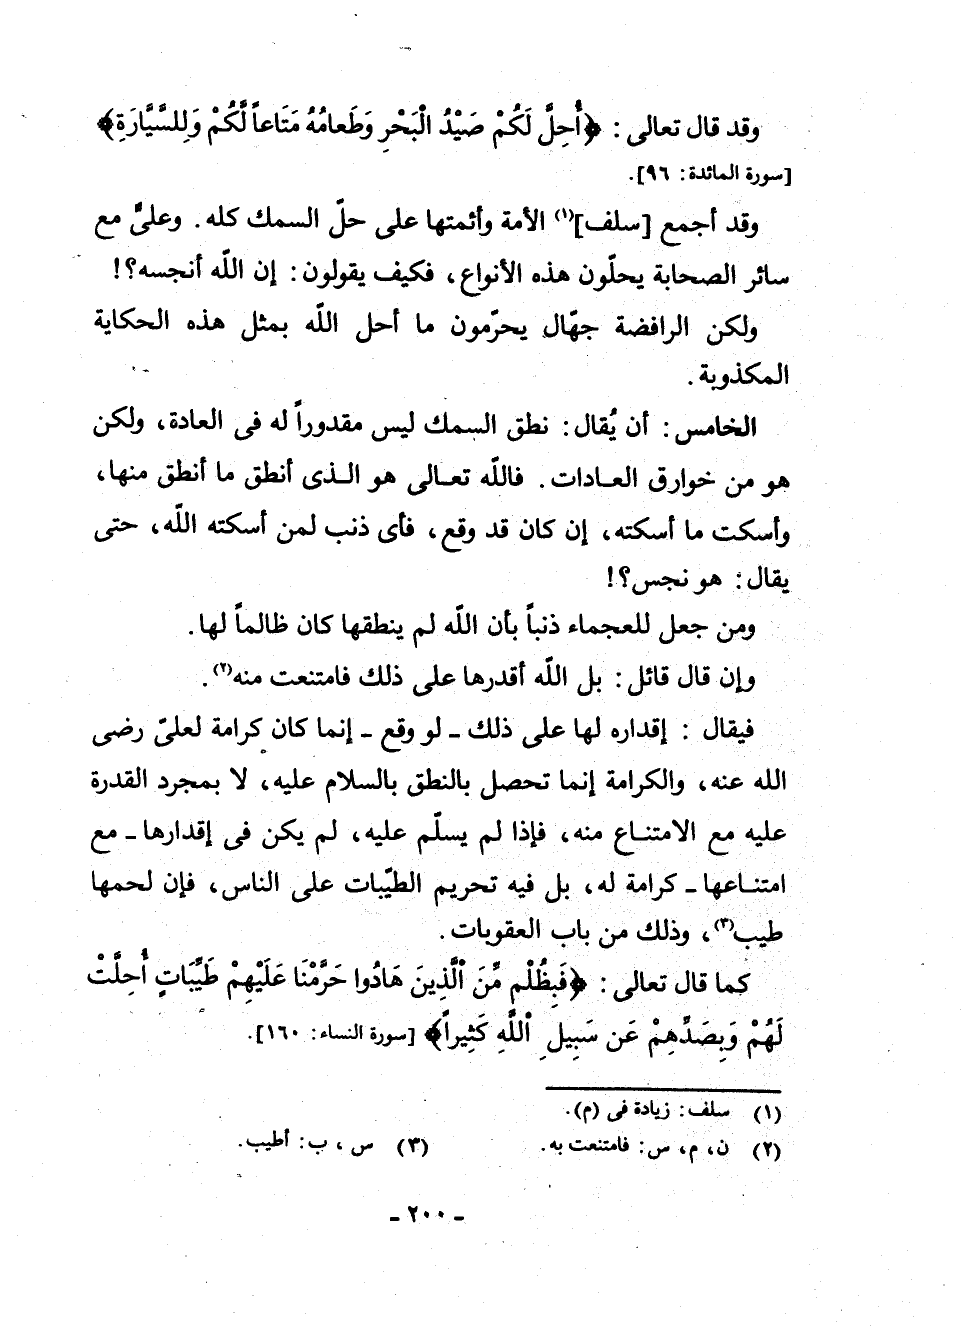 وقد قال تعالى : ﴿أُحِلَّ لَكُمْ صَيْدُ الْبَحْرِ وَطَعامُهُ مَتَاعاً لَّكُمْ وَلِلسَّيَّارَةِ﴾
[سورة المائدة: ٩٦].
وقد أجمع [سلف](١) الأمة وأئمتها على حلّ السمك كله. وعليٌّ مع
سائر الصحابة يحلّون هذه الأنواع، فكيف يقولون: إن اللّه أنجسه؟!
ولكن الرافضة جهّال يحرّمون ما أحل اللّه بمثل هذه الحكاية
المكذوبة.
الخامس: أن يُقال: نطق السمك ليس مقدوراً له فى العادة، ولكن
هو من خوارق العادات. فاللّه تعالى هو الذى أنطق ما أنطق منها،
وأسكت ما أسكته، إن كان قد وقع، فأى ذنب لمن أسكته اللّه، حتى
يقال: هو نجس؟!
ومن جعل للعجماء ذنباً بأن اللّه لم ينطقها كان ظالماً لها.
وإن قال قائل: بل اللّه أقدرها على ذلك فامتنعت منه(٢).
فيقال : إقداره لها على ذلك ـ لو وقع ـ إنما كان كرامة لعلىّ رضى
الله عنه، والكرامة إنما تحصل بالنطق بالسلام عليه، لا بمجرد القدرة
عليه مع الامتناع منه، فإذا لم يسلّم عليه، لم يكن فى إقدارها ـ مع
امتناعها ـ كرامة له، بل فيه تحريم الطيّبات على الناس، فإن لحمها
طيب(٣)، وذلك من باب العقوبات.
كما قال تعالى: ﴿فَبِظُلْمٍ مِّنَ ٱلَّذِينَ هَادُوا حَرَّمْنَا عَلَيْهِمْ طَيِّبَاتٍ أُحِلَّتْ
لَهُمْ وَبِصَدِّهِمْ عَن سَبِيلِ ٱللَّهِ كَثِيراً﴾ [سورة النساء: ١٦٠].
(١) سلف: زيادة فى (م).
(٢) ن، م، س: فامتنعت به. (٣) س ، ب: أطيب.
ـ ٢٠٠ ـ